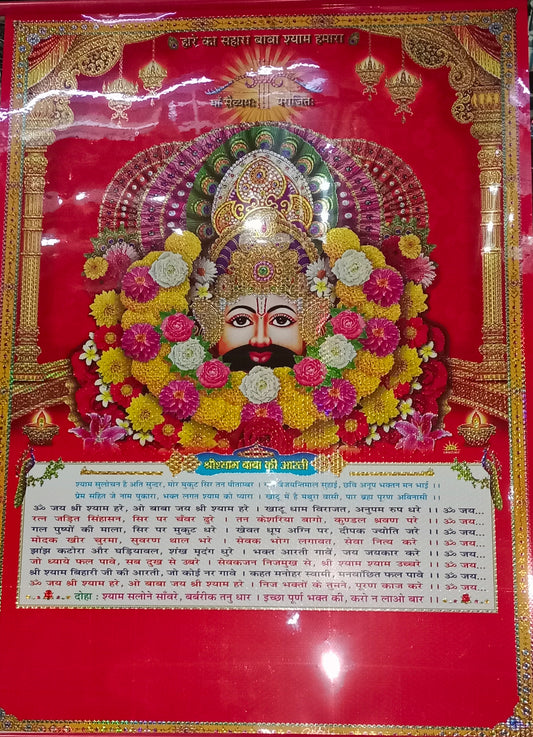 हारे का सहारा बाबा श्याम हमारा
मां सेव्यमः पराजितः
श्री श्याम बाबा की आरती
श्याम सुलोचन है अति सुन्दर, मोर मुकुट सिर तन पीताम्बर । गल वैजयन्तिमाल सुहाई, छवि अनूप भक्तन मन भाई ।।
प्रेम सहित जे नाम पुकारा, भक्त लगत श्याम को प्यारा । खाटू में है मथुरा वासी, पार ब्रह्म पूरण अविनासी ।।
ॐ जय श्री श्याम हरे, ओ बाबा जय श्री श्याम हरे । खाटू धाम विराजत, अनुपम रूप धरे ।। ॐ जय...
रत्न जड़ित सिंहासन, सिर पर चँवर दुरे । तन केशरिया बागो, कुण्डल श्रवण परे ।। ॐ जय...
गल पुष्पों की माला, सिर पर मुकुट धरे । खेवत धूप अग्नि पर, दीपक ज्योति जरे ।। ॐ जय...
मोदक खीर चुरमा, सुवरण थाल भरे । सेवक भोग लगावत, सेवा नित्य करे ।। ॐ जय...
झांझ कटोरा और घड़ियावल, शंख मृदंग धुरे । भक्त आरती गावें, जय जयकार करे ।। ॐ जय...
जो ध्याये फल पावे, सब दुख से उबरे । सेवकजन निजमुख से, श्री श्याम श्याम उच्चरे ।। ॐ जय...
श्री श्याम बिहारी जी की आरती, जो कोई नर गावे । कहत मनोहर स्वामी, मनवांछित फल पावे ।। ॐ जय...
ॐ जय श्री श्याम हरे, ओ बाबा जय श्री श्याम हरे । निज भक्तों के तुमने, पूरण काज करे ।। ॐ जय...
दोहा : श्याम सलोने साँवरे, बर्बरीक तनु धार । इच्छा पूर्ण भक्त की, करो न लाओ बार ।।